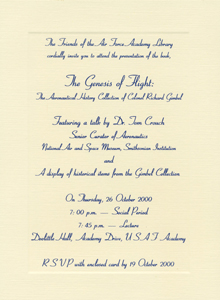 The Friends of the Air Force Academy Library
cordially invite you to attend the presentation of the book,
The Genesis of Flight:
The Aeronautical History Collection of Colonel Richard Gimbel
Featuring a talk by Dr. Tom Crouch
Senior Curator of Aeronautics
National Air and Space Museum, Smithsonian Institution
and
A display of historical items from the Gimbel Collection
On Thursday, 26 October 2000
7:00 p.m. — Social Period
7:45 p.m. — Lecture
Doolittle Hall, Academy Drive, USAF Academy
RSVP with enclosed card by 19 October 2000